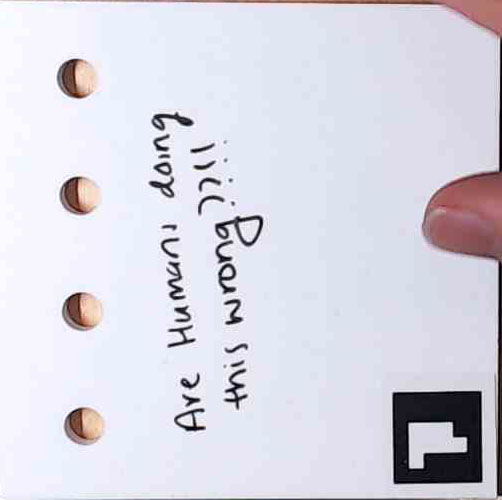 Are Humans doing
this wrong ??!!